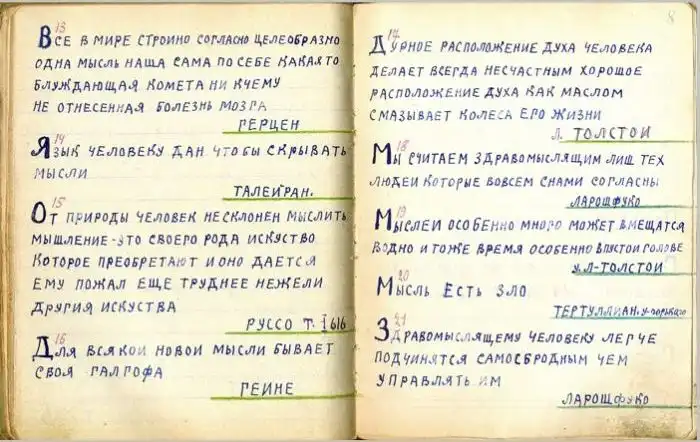 13
ВСЕ В МИРЕ СТРОИНО СОГЛАСНО ЦЕЛЕОБРАЗНО
ОДНА МЫСЛЬ НАША САМА ПО СЕБЕ КАКАЯТО
БЛУЖДАЮЩАЯ КОМЕТА НИ КЧЕМУ
НЕ ОТНЕСЕННАЯ БОЛЕЗНЬ МОЗГА
ГЕРЦЕН
14
ЯЗЫК ЧЕЛОВЕКУ ДАН ЧТОБЫ СКРЫВАТЬ
МЫСЛИ
ТАЛЕЙРАН.
15
ОТ ПРИРОДЫ ЧЕЛОВЕК НЕСКЛОНЕН МЫСЛИТЬ
МЫШЛЕНИЕ-ЭТО СВОЕГО РОДА ИСКУСТВО
КОТОРОЕ ПРЕОБРЕТАЮТ И ОНО ДАЕТСЯ
ЕМУ ПОЖАЛ ЕЩЕ ТРУДНЕЕ НЕЖЕЛИ
ДРУГИЯ ИСКУСТВА
РУССО Т. I 616
16
ДЛЯ ВСЯКОИ НОВОИ МЫСЛИ БЫВАЕТ
СВОЯ ГАЛГОФА
ГЕИНЕ
8
ДУРНОЕ РАСПОЛОЖЕНИЕ ДУХА ЧЕЛОВЕКА
ДЕЛАЕТ ВСЕГДА НЕСЧАСТНЫМ ХОРОШОЕ
РАСПОЛОЖЕНИЕ ДУХА КАК МАСЛОМ
СМАЗЫВАЕТ КОЛЕСА ЕГО ЖИЗНИ
Л. ТОЛСТОИ
18
МЫ СЧИТАЕМ ЗДРАВОМЫСЛЯЩИМ ЛИШ ТЕХ
ЛЮДЕИ КОТОРЫЕ ВОВСЕМ СНАМИ СОГЛАСНЫ
ЛАРОШФУКО
19
МЫСЛЕИ ОСОБЕННО МНОГО МОЖЕТ ВМЕЩАТСЯ
ВОДНО И ТОЖЕ ВРЕМЯ ОСОБЕННО ВПУСТОИ ГОЛОВЕ
У.Л-ТОЛСТОИ
20
МЫСЛЬ ЕСТЬ ЗЛО
ТЕРТУЛЛИАН.
21
ЗДРАВОМЫСЛЯЩЕМУ ЧЕЛОВЕКУ ЛЕГЧЕ
ПОДЧИНЯТСЯ САМОСБРОДНЫМ ЧЕМ
УПРАВЛЯТЬ ИМ
ЛАРОШФУКО